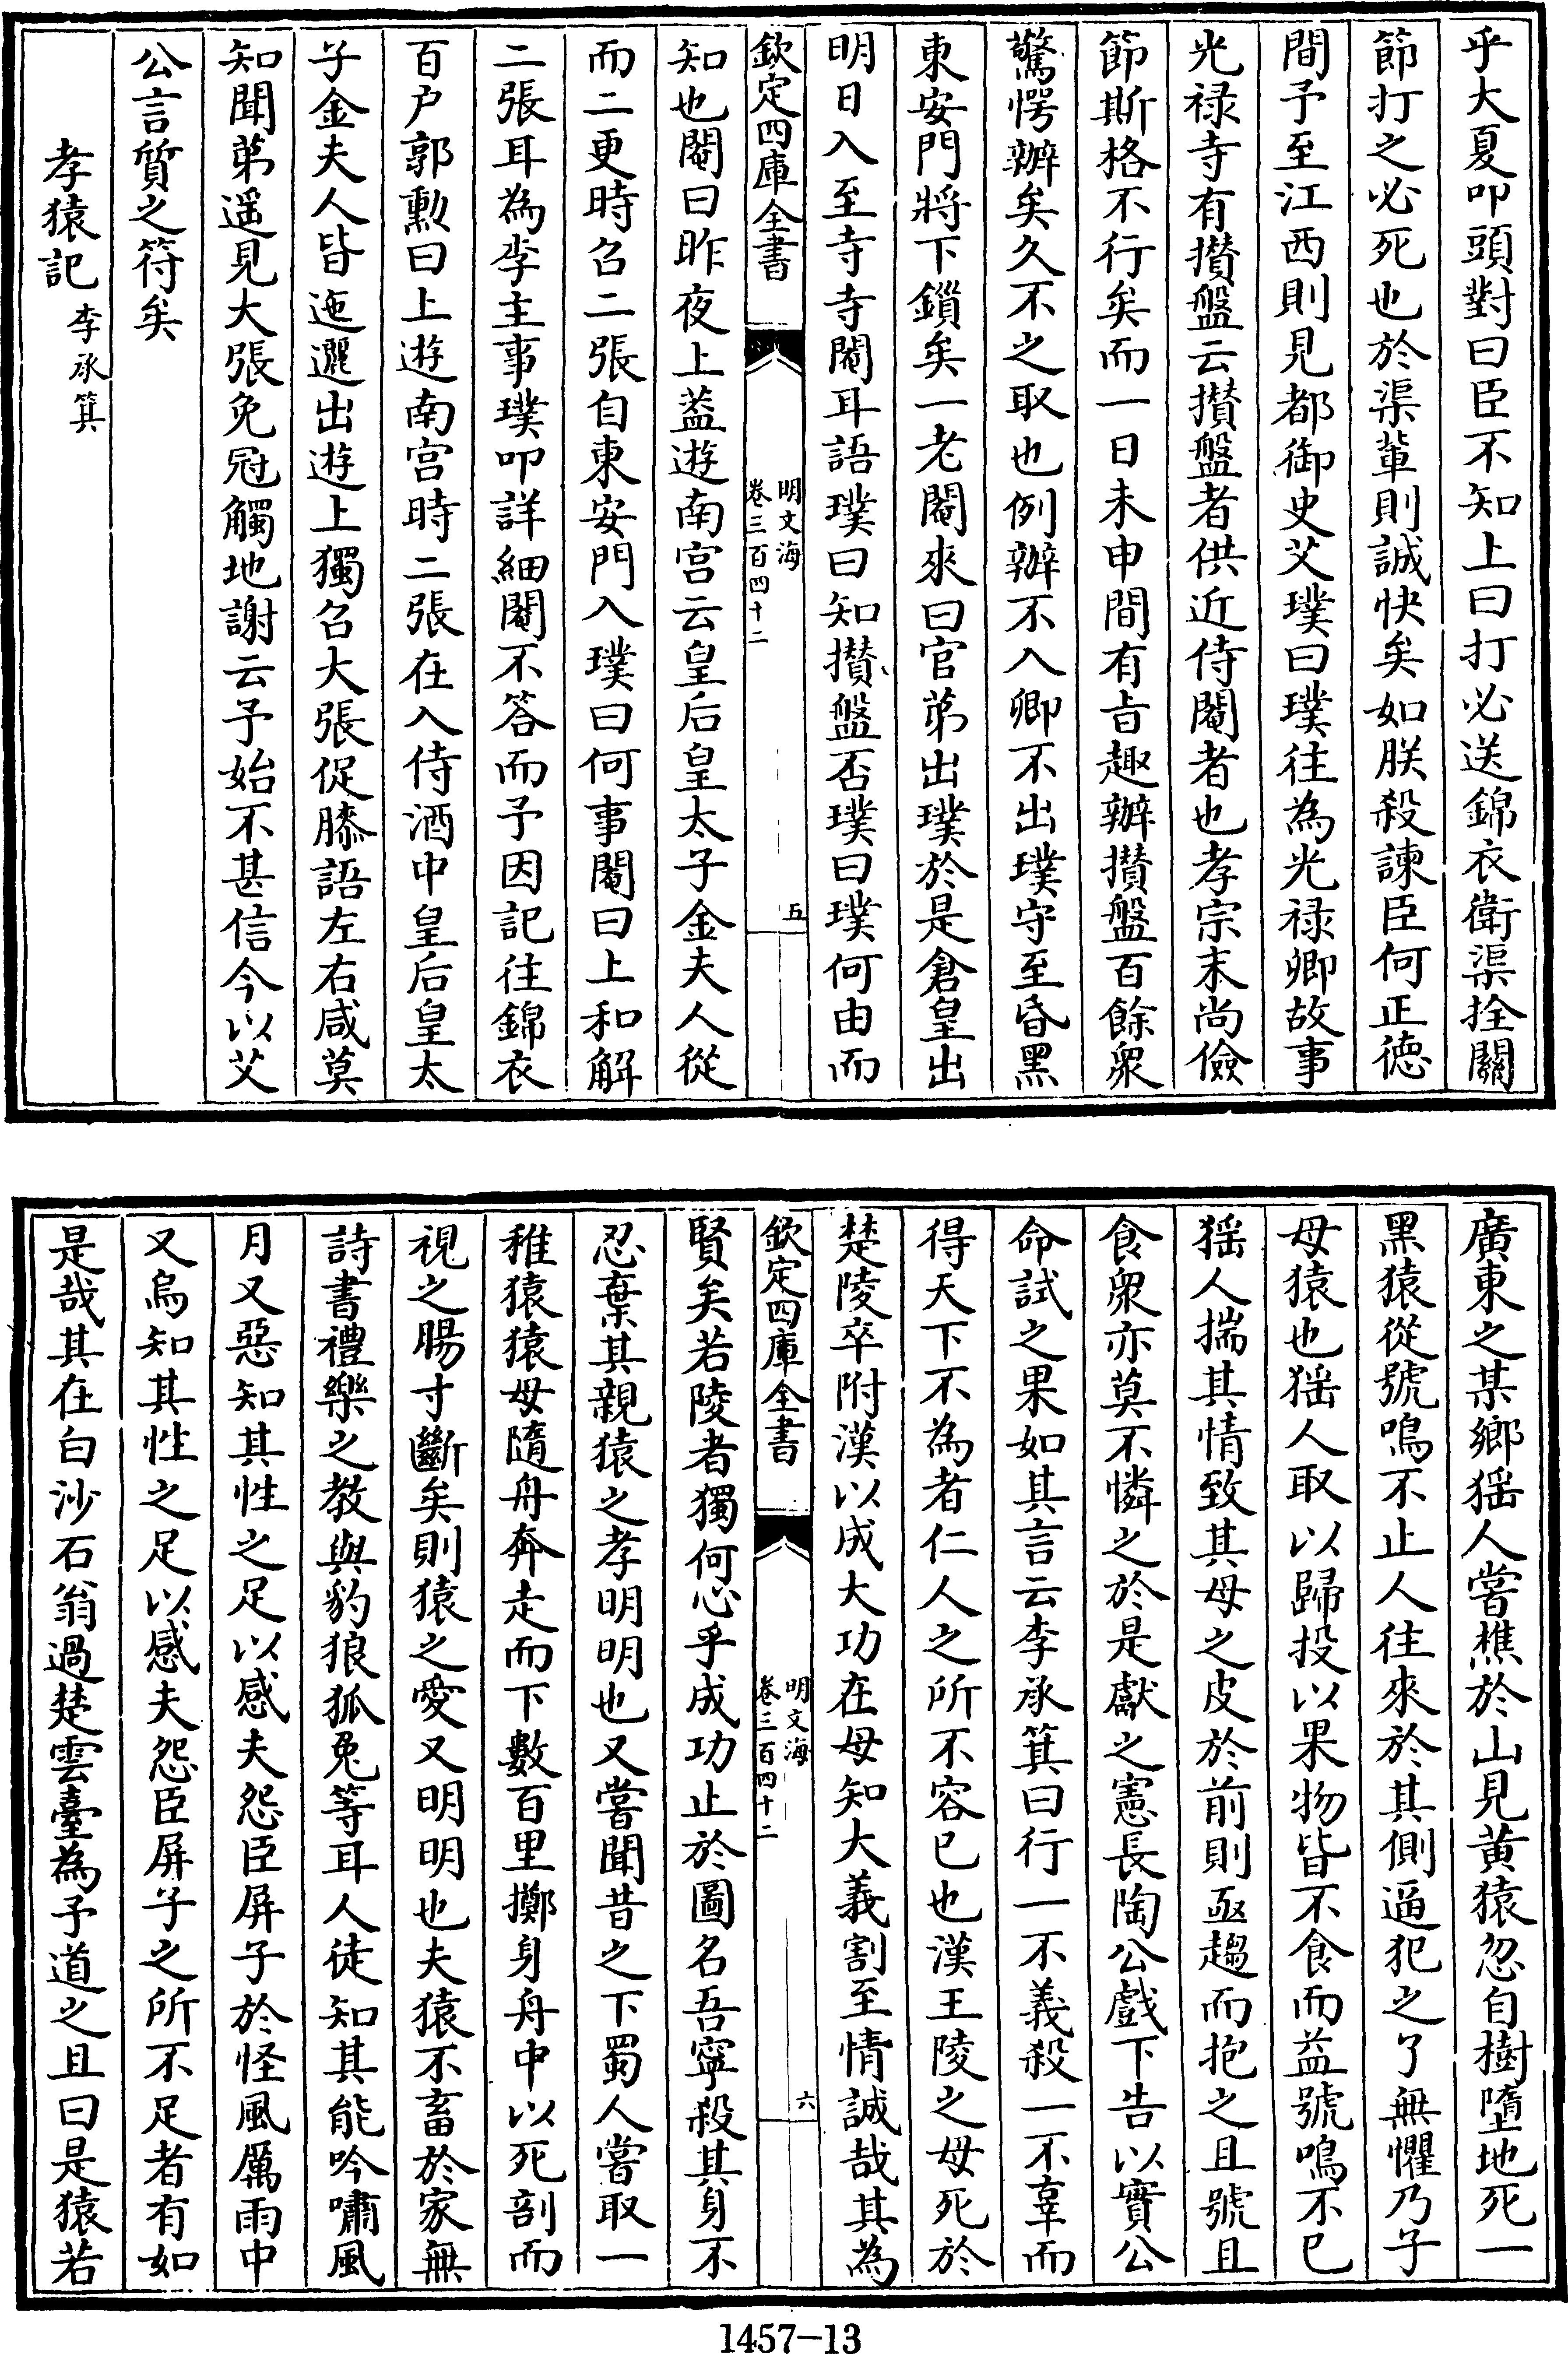 乎大夏叩頭對曰臣不知上曰打必送錦衣衛渠拴關
節打之必死也於渠輩則誠快矣如朕殺諫臣何正徳
間予至江西則見都御史艾璞曰璞往為光禄卿故事
光禄寺有攅盤云攅盤者供近侍閹者也孝宗末尚儉
節斯格不行矣而一日未申間有㫖趣辦攅盤百餘衆
驚愕辦矣久不之取也例辦不入卿不出璞守至昏黑
東安門將下鎖矣一老閹來曰官第出璞於是倉皇出
明日入至寺寺閹耳語璞曰知攅盤否璞曰璞何由而
欽定四庫全書
明文海
卷三百四十二
五
知也閹曰昨夜上葢遊南宫云皇后皇太子金夫人從
而二更時召二張自東安門入璞曰何事閹曰上和解
二張耳為李主事璞叩詳細閹不答而予因記往錦衣
百户郭勲曰上遊南宫時二張在入侍酒中皇后皇太
子金夫人皆迤邐出遊上獨召大張促膝語左右咸莫
知聞第遥見大張免冠觸地謝云予始不甚信今以艾
公言質之符矣
孝猿記 李承箕
廣東之某鄉猺人嘗樵於山見黄猿忽自樹墮地死一
黑猿從號鳴不止人往來於其側逼犯之了無懼乃子
母猿也猺人取以歸投以果物皆不食而益號鳴不已
猺人揣其情致其母之皮於前則亟趨而抱之且號且
食衆亦莫不憐之於是獻之憲長陶公戲下告以實公
命試之果如其言云李承箕曰行一不義殺一不辜而
得天下不為者仁人之所不容已也漢王陵之母死於
楚陵卒附漢以成大功在母知大義割至情誠哉其為
欽定四庫全書
明文海
卷三百四十二
六
賢矣若陵者獨何心乎成功止於圖名吾寧殺其身不
忍棄其親猿之孝明明也又嘗聞昔之下蜀人嘗取一
稚猿猿母隨舟奔走而下數百里擲身舟中以死剖而
視之腸寸斷矣則猿之愛又明明也夫猿不畜於家無
詩書禮樂之教與豹狼狐兔等耳人徒知其能吟嘯風
月又惡知其性之足以感夫怨臣屏子於怪風厲雨中
又烏知其性之足以感夫怨臣屏子之所不足者有如
是哉其在白沙石翁過楚雲臺為予道之且曰是猿若
1457-13